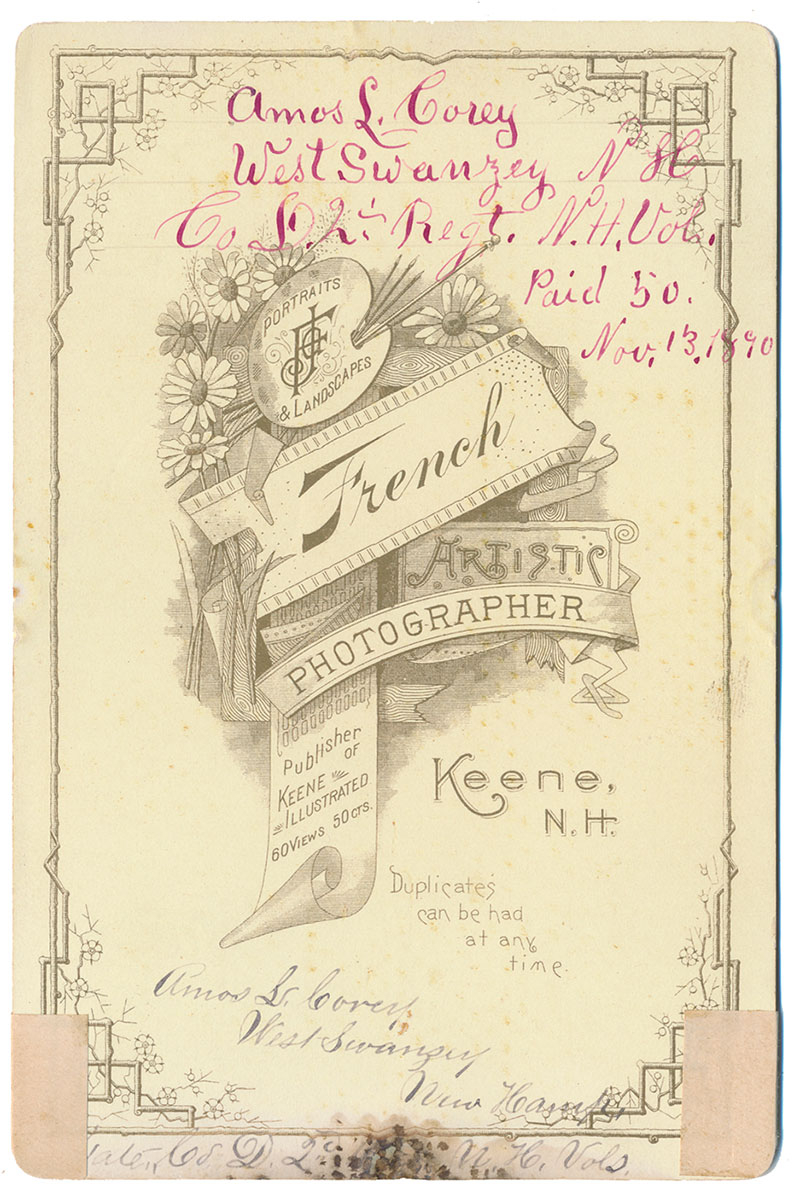 Amos L. Corey
West Swanzey N H
Co D. 2nd Regt. N.H. Vol.
Paid 50.
Nov. 13. 1890
PORTRAITS
JAF
& LANDSCAPES
French
ARTISTIC
PHOTOGRAPHER
Publisher
OF
KEENE
ILLUSTRATED
60 VIEWS 50 CTS.
Keene,
N.H.
Duplicates
can be had
at any
time.
Amos L. Corey
West Swanzey
New Hamp.
Co D. 2nd N. H. Vols.